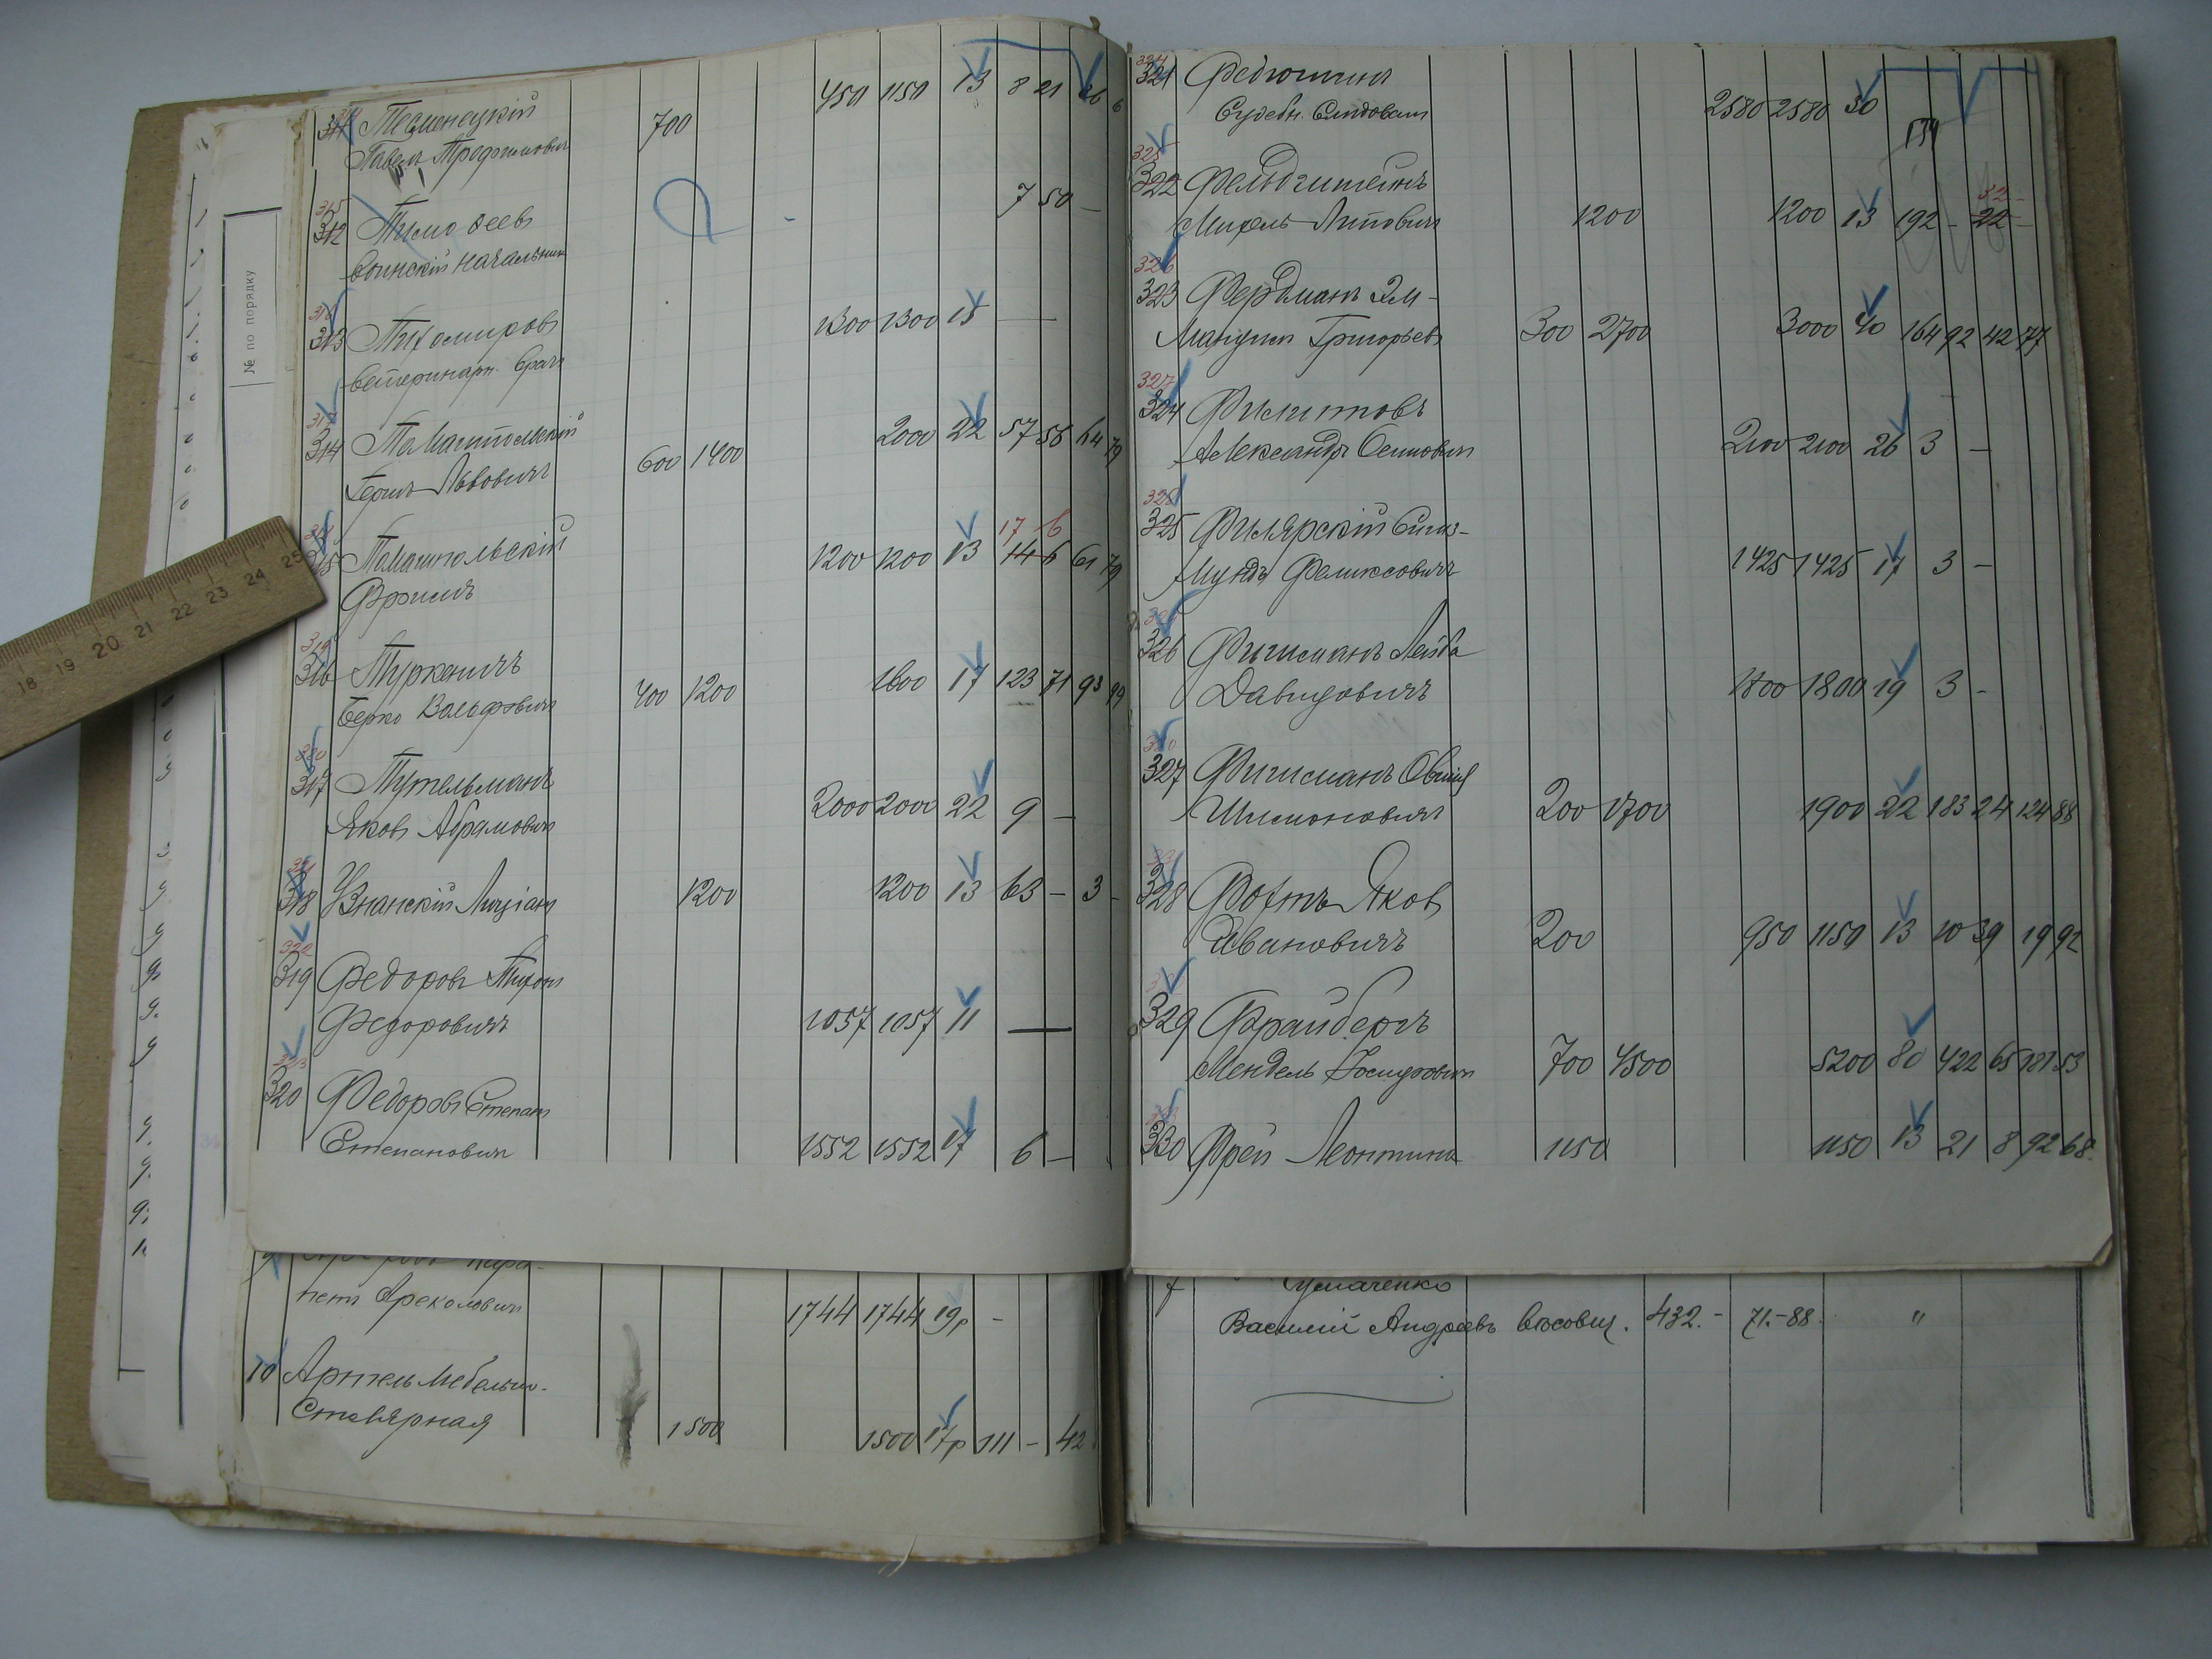 700 450 1150 13 8 21
Павелъ Трофимовичъ
315
312 Тимофеев 7 50 —
Воинскій Начальник
316
313 Тихомиров 1300 1300 15 —
Ветеринарн. Врачъ
317
314 2000 22 57 56 64 79
Львовичъ 600 1400
17 6
1200 1200 13 14 6 61 79
Фроимъ
319
316 Туркеничъ 400 1200 1600 17 123 71 93 99
Берко Вольфовичъ
320
317 Тутельманъ 2000 2000 22 9 —
Яковъ Абрамовичъ
318 Узнанскій Люціанъ 1200 1200 13 63 — 3 -
322
319 Федоровъ Тихонъ
Федоровичъ 1057 1057 11 —
323
320 Федоровъ Степанъ
Степановичъ 1552 1552 17 6 —
1744 1744 19р -
10 Артель Мебельно-
Столярная 1500 1500 17р 111 - 42
№ по порядку
18 19 20 21 22 23 24 25
321 2580 2580 30
Судебн. Слѣдователь 134
325
322 Фельдштейнъ 32 -
1200 1200 13 192 - 22 -
326
323 Фердманъ Эм-
Мануилъ Григорьевъ 300 2700 3000 40 164 92 42 77
327
324 Филиповъ
Александръ Осиповичъ 2100 2100 26 3 —
328
325 Филярскій Сигиз-
Мундъ Феликсовичъ 1425 1425 17 3 -
326 Фишманъ Лейба
Давидовичъ 1800 1800 19 3 -
327 Фишманъ Овшій
Шимоновичъ 200 1700 1900 22 183 24 124 88
328 Фохтъ Яковъ
Ивановичъ 200 950 1150 13 10 39 19 92
329 Фрайбергъ
Мендель 700 4500 5200 80 422 65 181 53
330 Фрей Леонтина 1150 1150 13 21 8 92 68
Василий Андреевъ вѣсовщ. 432.- 71.-88. "